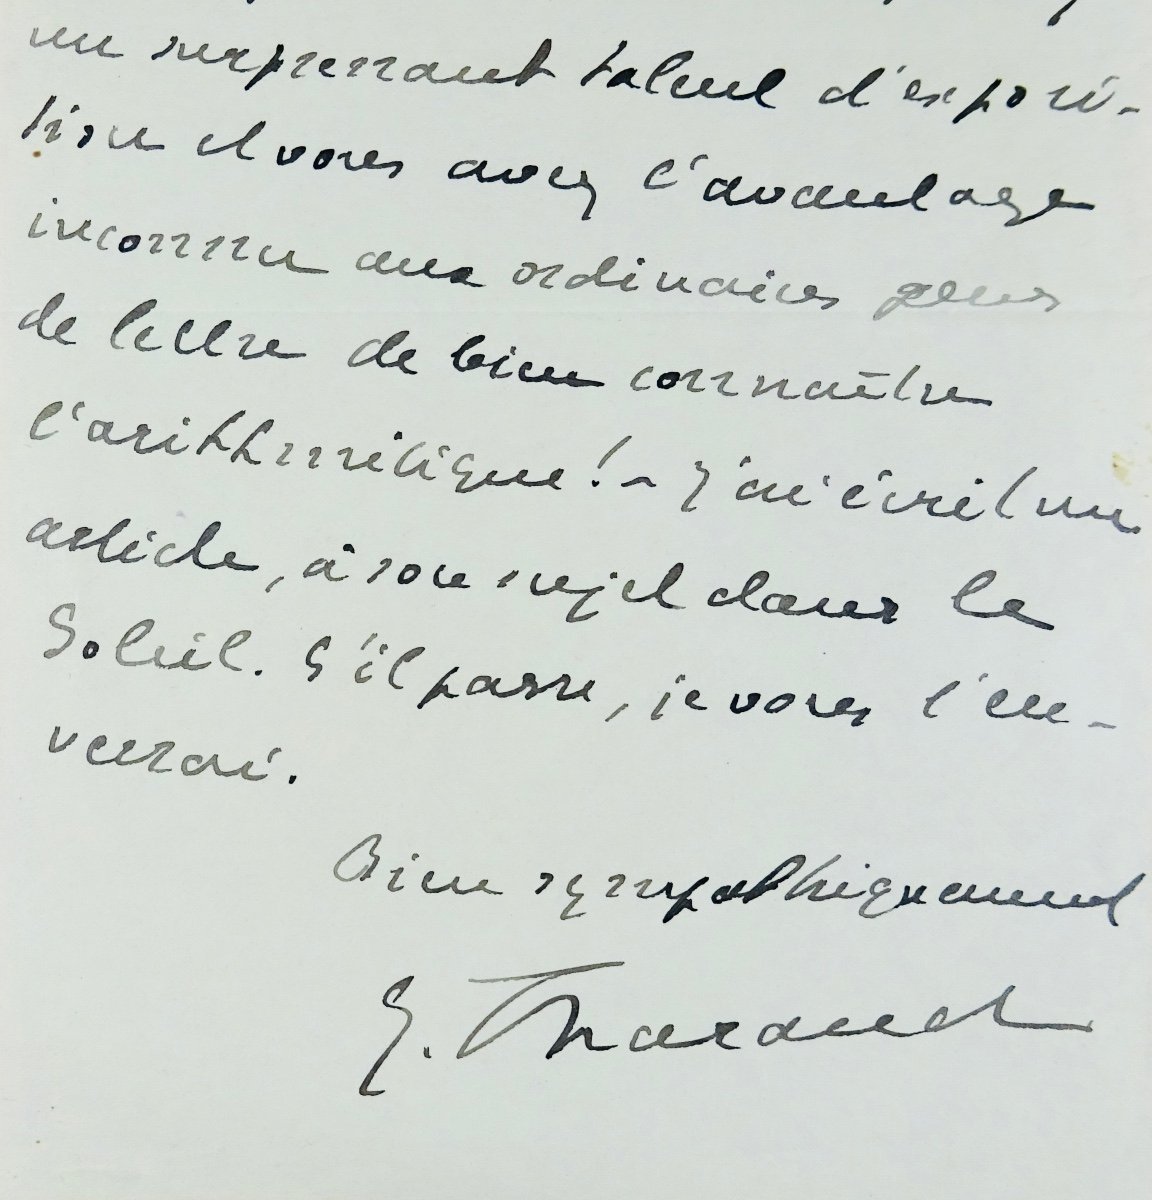 un surprenant talent d'exposi-
tion et vous avez l'avantage
inconnu aux ordinaires gens
de lettre de bien connaître
l'arithmétique ! - J'ai écrit un
article, à son sujet dans le
Soleil. S'il passe, je vous l'en-
verrai.
Bien sympathiquement
J. Tharaud